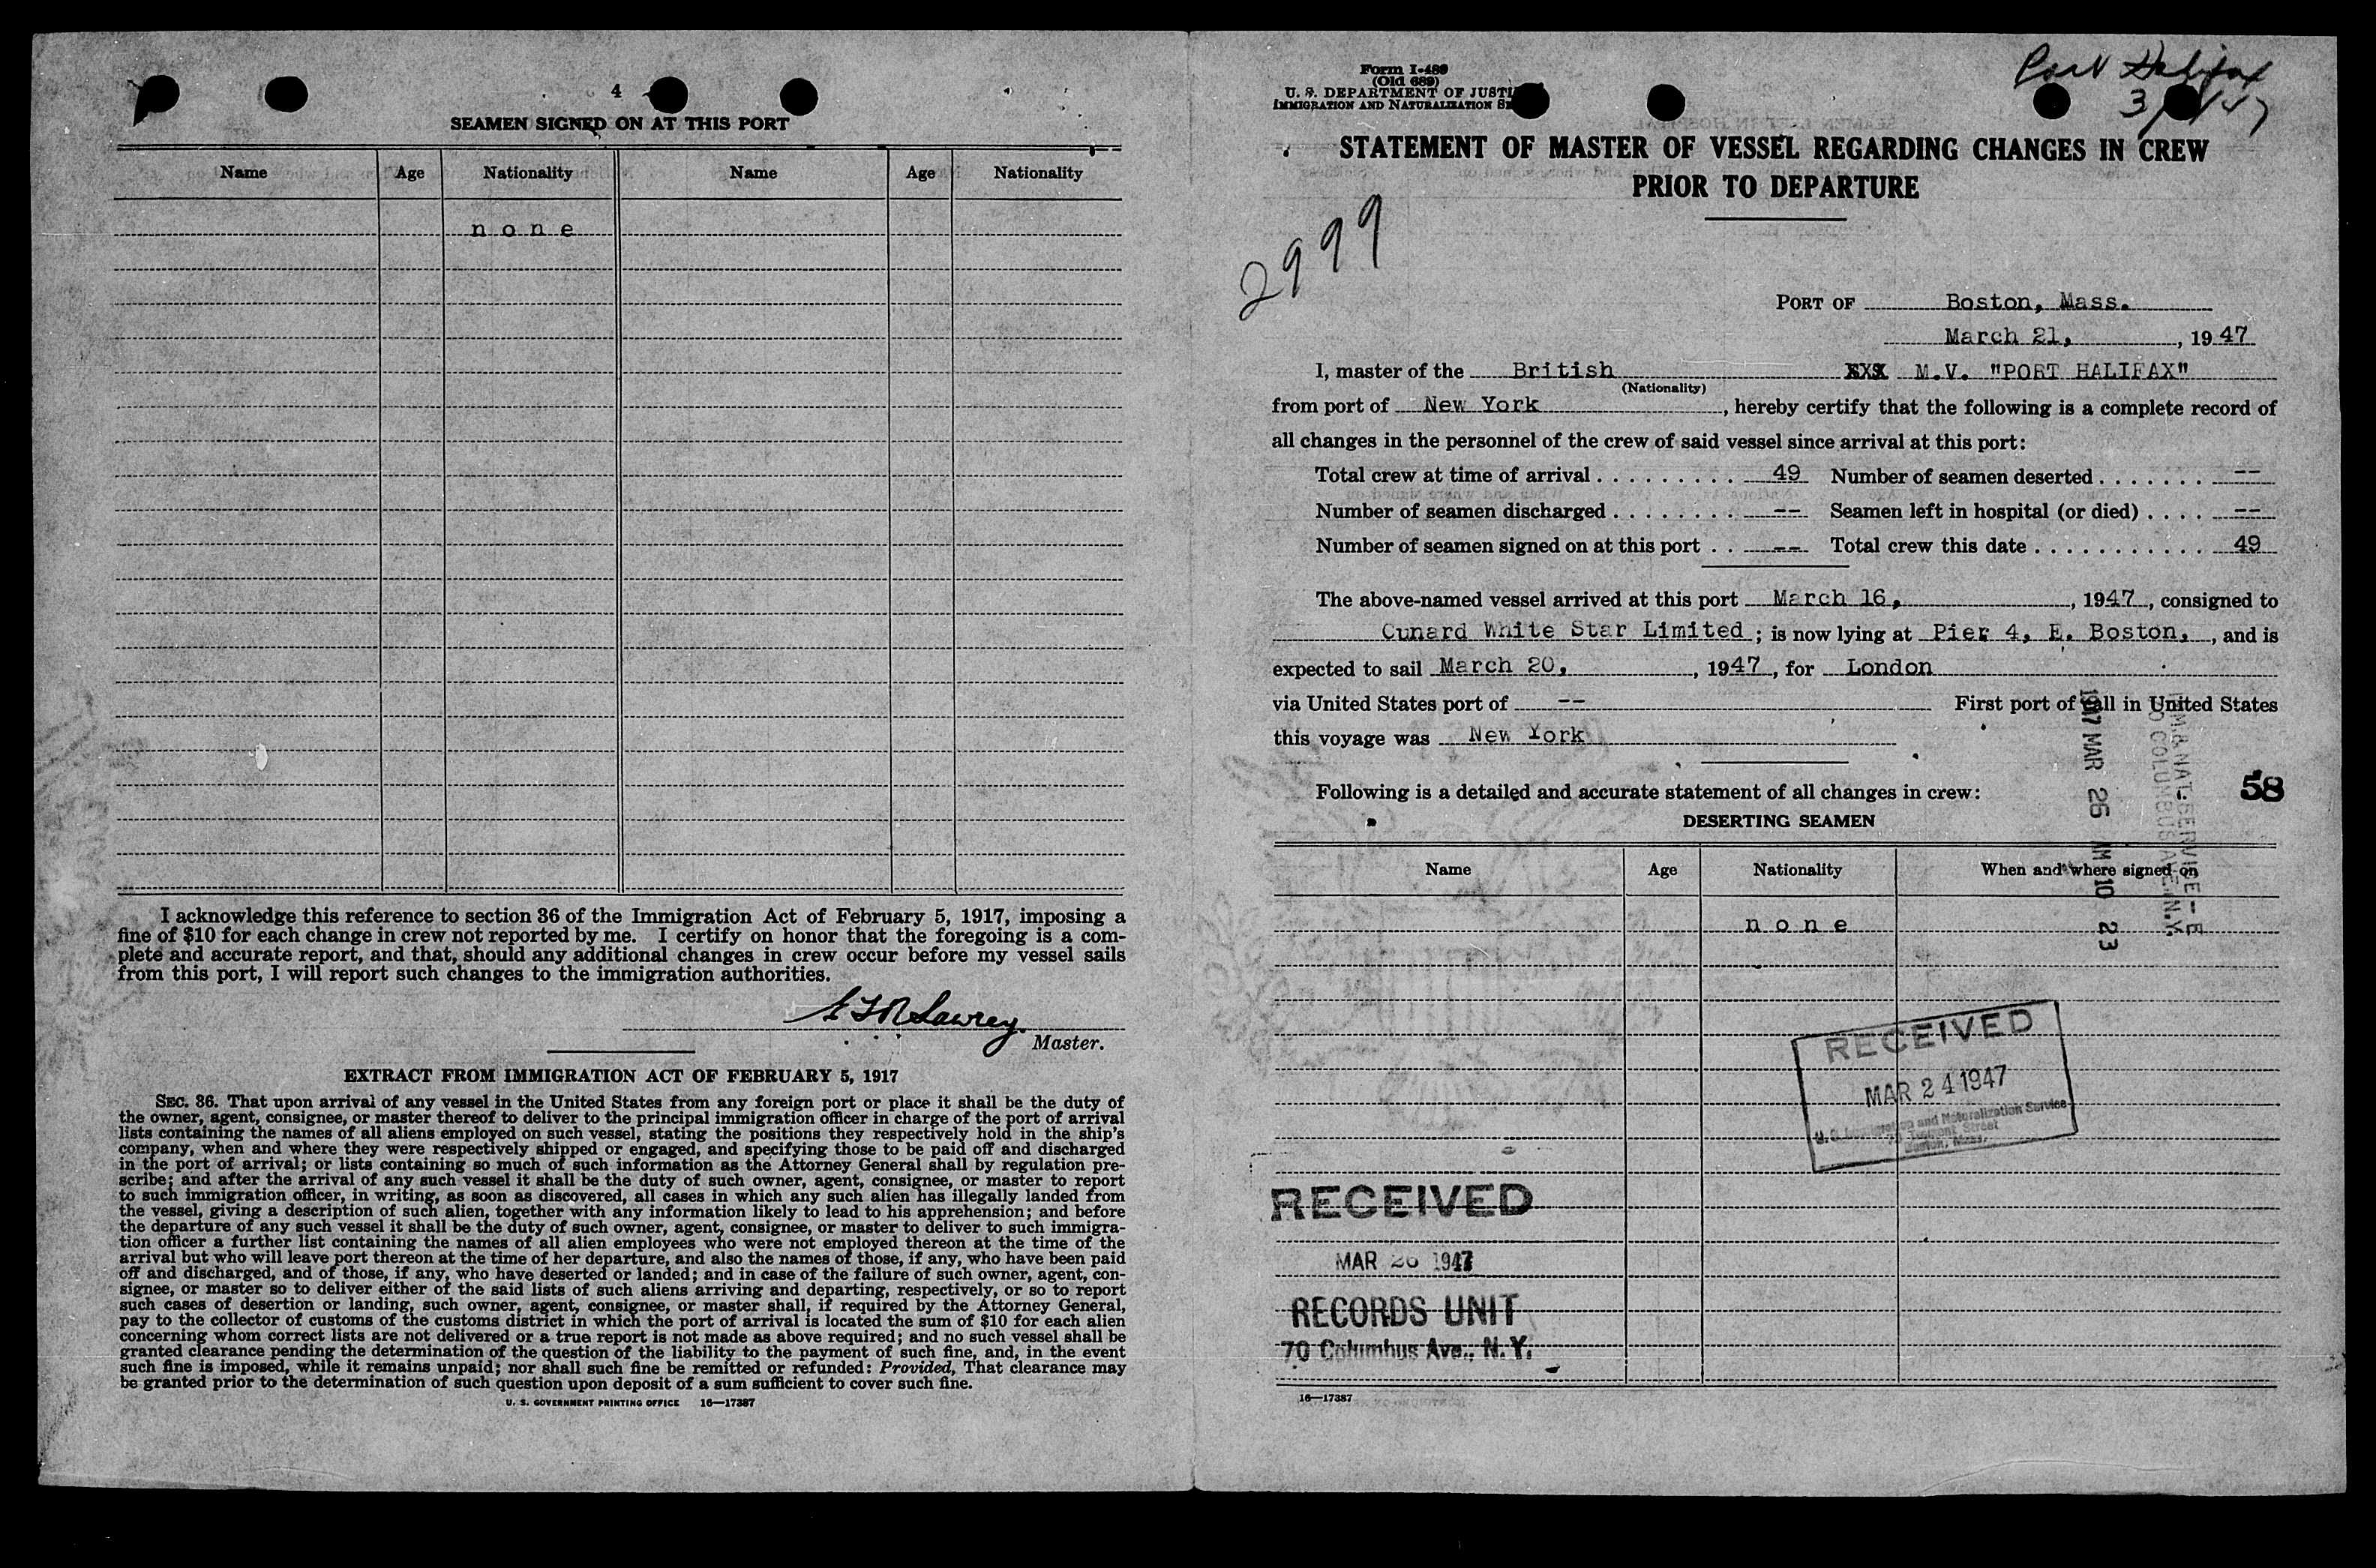 4
SEAMEN SIGNED ON AT THIS PORT
Name Age Nationality Name Age Nationality
none
I acknowledge this reference to section 36 of the Immigration Act of February 5, 1917, imposing a
fine of $10 for each change in crew not reported by me. I certify on honor that the foregoing is a com-
plete and accurate report, and that, should any additional changes in crew occur before my vessel sails
from this port, I will report such changes to the immigration authorities.
Lawrey
Master.
EXTRACT FROM IMMIGRATION ACT OF FEBRUARY 5, 1917
SEC. 36. That upon arrival of any vessel in the United States from any foreign port or place it shall be the duty of
the owner, agent, consignee, or master thereof to deliver to the principal immigration officer in charge of the port of arrival
lists containing the names of all aliens employed on such vessel, stating the positions they respectively hold in the ship's
company, when and where they were respectively shipped or engaged, and specifying those to be paid off and discharged
in the port of arrival; or lists containing so much of such information as the Attorney General shall by regulation pre-
scribe; and after the arrival of any such vessel it shall be the duty of such owner, agent, consignee, or master to report
to such immigration officer, in writing, as soon as discovered, all cases in which any such alien has illegally landed from
the vessel, giving a description of such alien, together with any information likely to lead to his apprehension; and before
the departure of any such vessel it shall be the duty of such owner, agent, consignee, or master to deliver to such immigra-
tion officer a further list containing the names of all alien employees who were not employed thereon at the time of the
arrival but who will leave port thereon at the time of her departure, and also the names of those, if any, who have been paid
off and discharged, and of those, if any, who have deserted or landed; and in case of the failure of such owner, agent, con-
signee, or master so to deliver either of the said lists of such aliens arriving and departing, respectively, or so to report
such cases of desertion or landing, such owner, agent, consignee, or master shall, if required by the Attorney General,
pay to the collector of customs of the customs district in which the port of arrival is located the sum of $10 for each alien
concerning whom correct lists are not delivered or a true report is not made as above required; and no such vessel shall be
granted clearance pending the determination of the question of the liability to the payment of such fine, and, in the event
such fine is imposed, while it remains unpaid; nor shall such fine be remitted or refunded: Provided, That clearance may
be granted prior to the determination of such question upon deposit of a sum sufficient to cover such fine.
U. S. GOVERNMENT PRINTING OFFICE 16—17387
Form I-489
(Old 689)
U. S. DEPARTMENT OF JUSTI
IMMIGRATION AND NATURALIZATION SE
Port Halifax
STATEMENT OF MASTER OF VESSEL REGARDING CHANGES IN CREW
PRIOR TO DEPARTURE
2999
PORT OF Boston, Mass.
March 21, , 1947
I, master of the British XXX M.V. "PORT HALIFAX"
(Nationality)
from port of New York , hereby certify that the following is a complete record of
all changes in the personnel of the crew of said vessel since arrival at this port:
Total crew at time of arrival . . . . . . . . . 49 Number of seamen deserted . . . . . . . --
Number of seamen discharged . . . . . . . . -- Seamen left in hospital (or died) . . . . --
Number of seamen signed on at this port . . -- Total crew this date . . . . . . . . . . . 49
The above-named vessel arrived at this port March 16, , 1947 , consigned to
Cunard White Star Limited ; is now lying at Pier 4, E. Boston, , and is
expected to sail March 20, , 1947 , for London
via United States port of -- First port of call in United States
this voyage was New York
Following is a detailed and accurate statement of all changes in crew:
58
DESERTING SEAMEN
Name Age Nationality When and where signed on
none
1947 MAR 26 AM 10 23
IMM & NAT. SERVICE - E
70 COLUMBUS AVE. N.Y.
RECEIVED
MAR 24 1947
U. S. Immigration and Naturalization Service
Boston, Mass.
RECEIVED
MAR 26 1947
RECORDS UNIT
70 Columbus Ave., N. Y.
16—17387